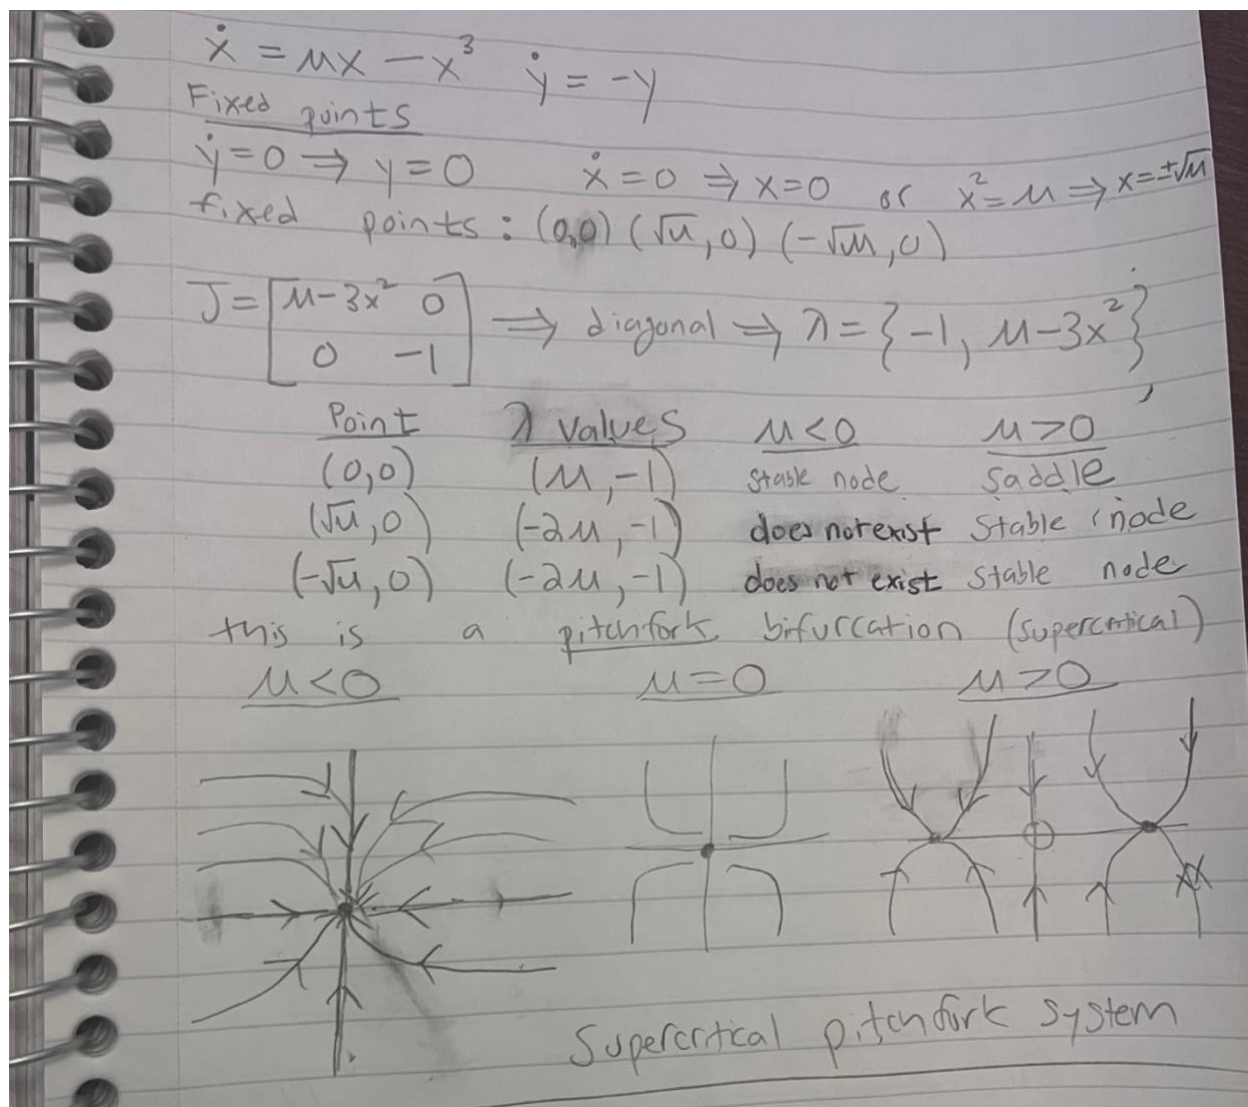 ẋ = μx - x³   ẏ = -y
Fixed points
ẏ=0 ⇒ y=0   ẋ=0 ⇒ x=0 or x²=μ ⇒ x=±√μ
fixed points : (0,0) (√μ,0) (-√μ,0)
J = [μ-3x² 0
0 -1] ⇒ diagonal ⇒ λ = {-1, μ-3x²}
Point   λ values   μ<0   μ>0
(0,0)   (μ,-1)   stable node   saddle
(√μ,0)   (-2μ,-1)   does not exist   stable node
(-√μ,0)   (-2μ,-1)   does not exist   stable node
this is a pitchfork bifurcation (supercritical)
μ<0   μ=0   μ>0
Supercritical pitchfork system